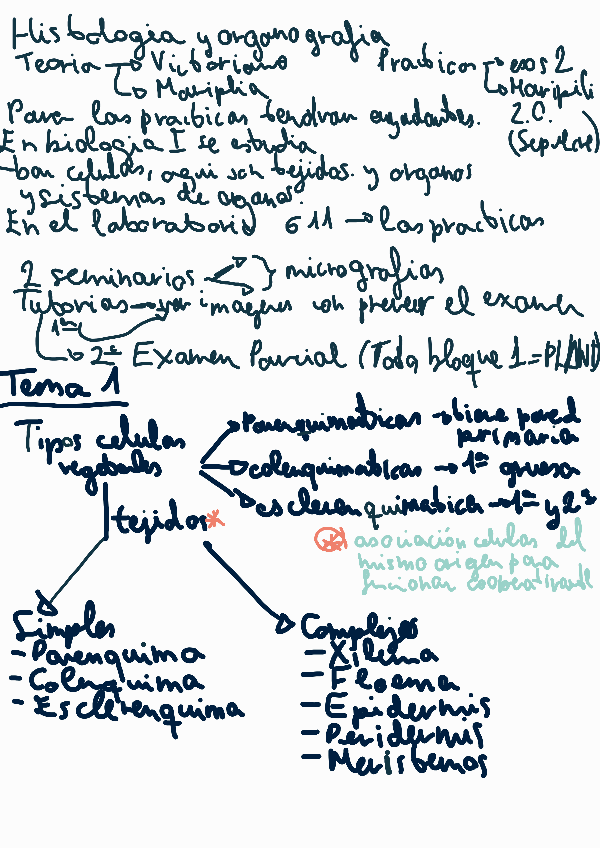 Histologia y organografia
Teoria → Victoriano Practicas → esos 2
→ Maripila → Maripili
Para las practicas tendran ayudantes. 2.C.
En biologia I se estudia
ban celulas, aqui son tejidos y organos
y sistemas de organos.
En el laboratorio 611 → las practicas
2 seminarios } micrografias
Tutorias → ver imagenes con prever el examen
1ª
→ 2ª Examen Parcial (Todo bloque 1 =
Tema 1
Tipos celulas
vegetales
Parenquimaticas → tiene pared
primaria
colenquimaticas → 1ª gruesa
esclerenquimatica → 1ª y 2ª
tejidos*
* asociación celulas del
mismo origen para
funcionar
Simples
- Parenquima
- Colenquima
- Esclerenquima
Complejos
- Xilema
- Floema
- Epidermis
- Peridermis
- Meristemos